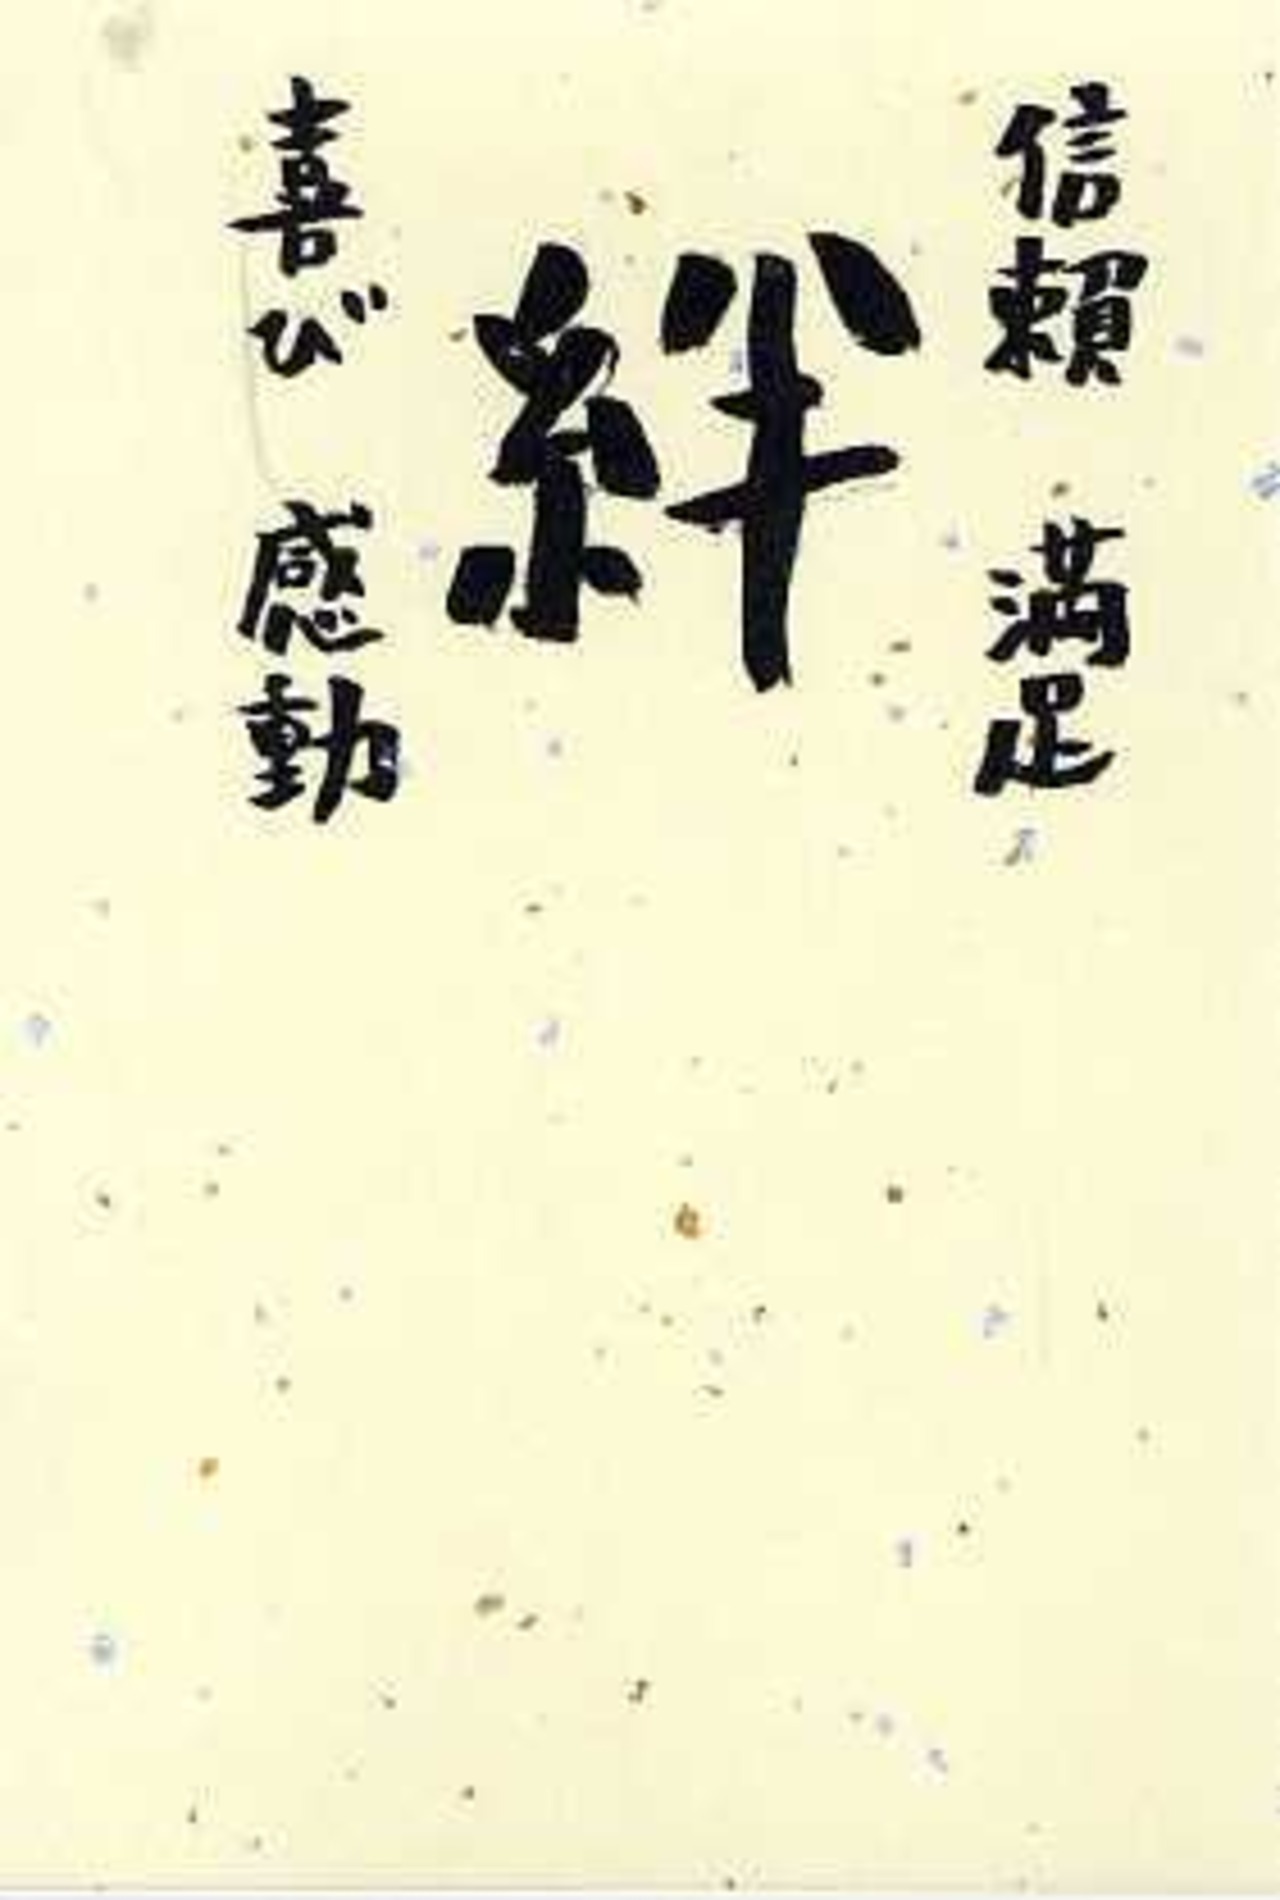 信頼　満足
絆
喜び　感動